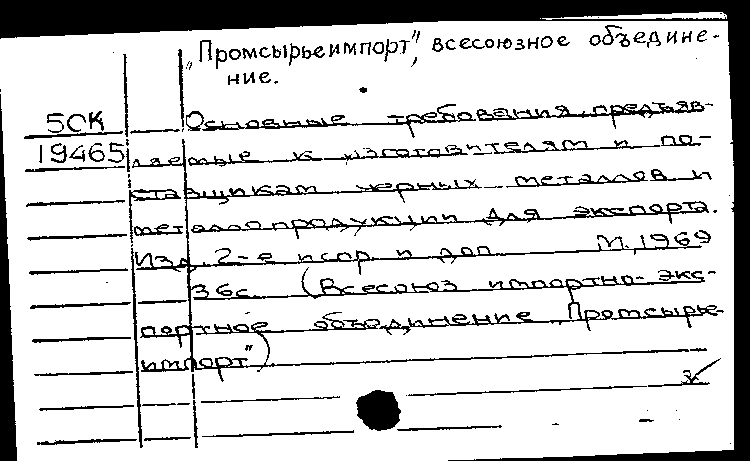 „Промсырьеимпорт", всесоюзное объедине-
ние.
5СК Основные требования, предъяв-
19465 ляемые к изготовителям и по-
ставщикам черных металлов и
металлопродукции для экспорта.
Изд. 2-е испр. и доп М., 1969
36с. (Всесоюз импортно-экс-
портное объединение „Промсырье-
импорт")